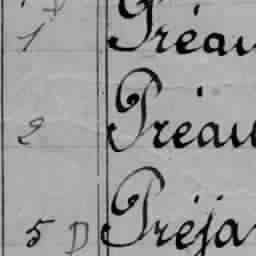 1 Préau
2 Préau
5 D Préja